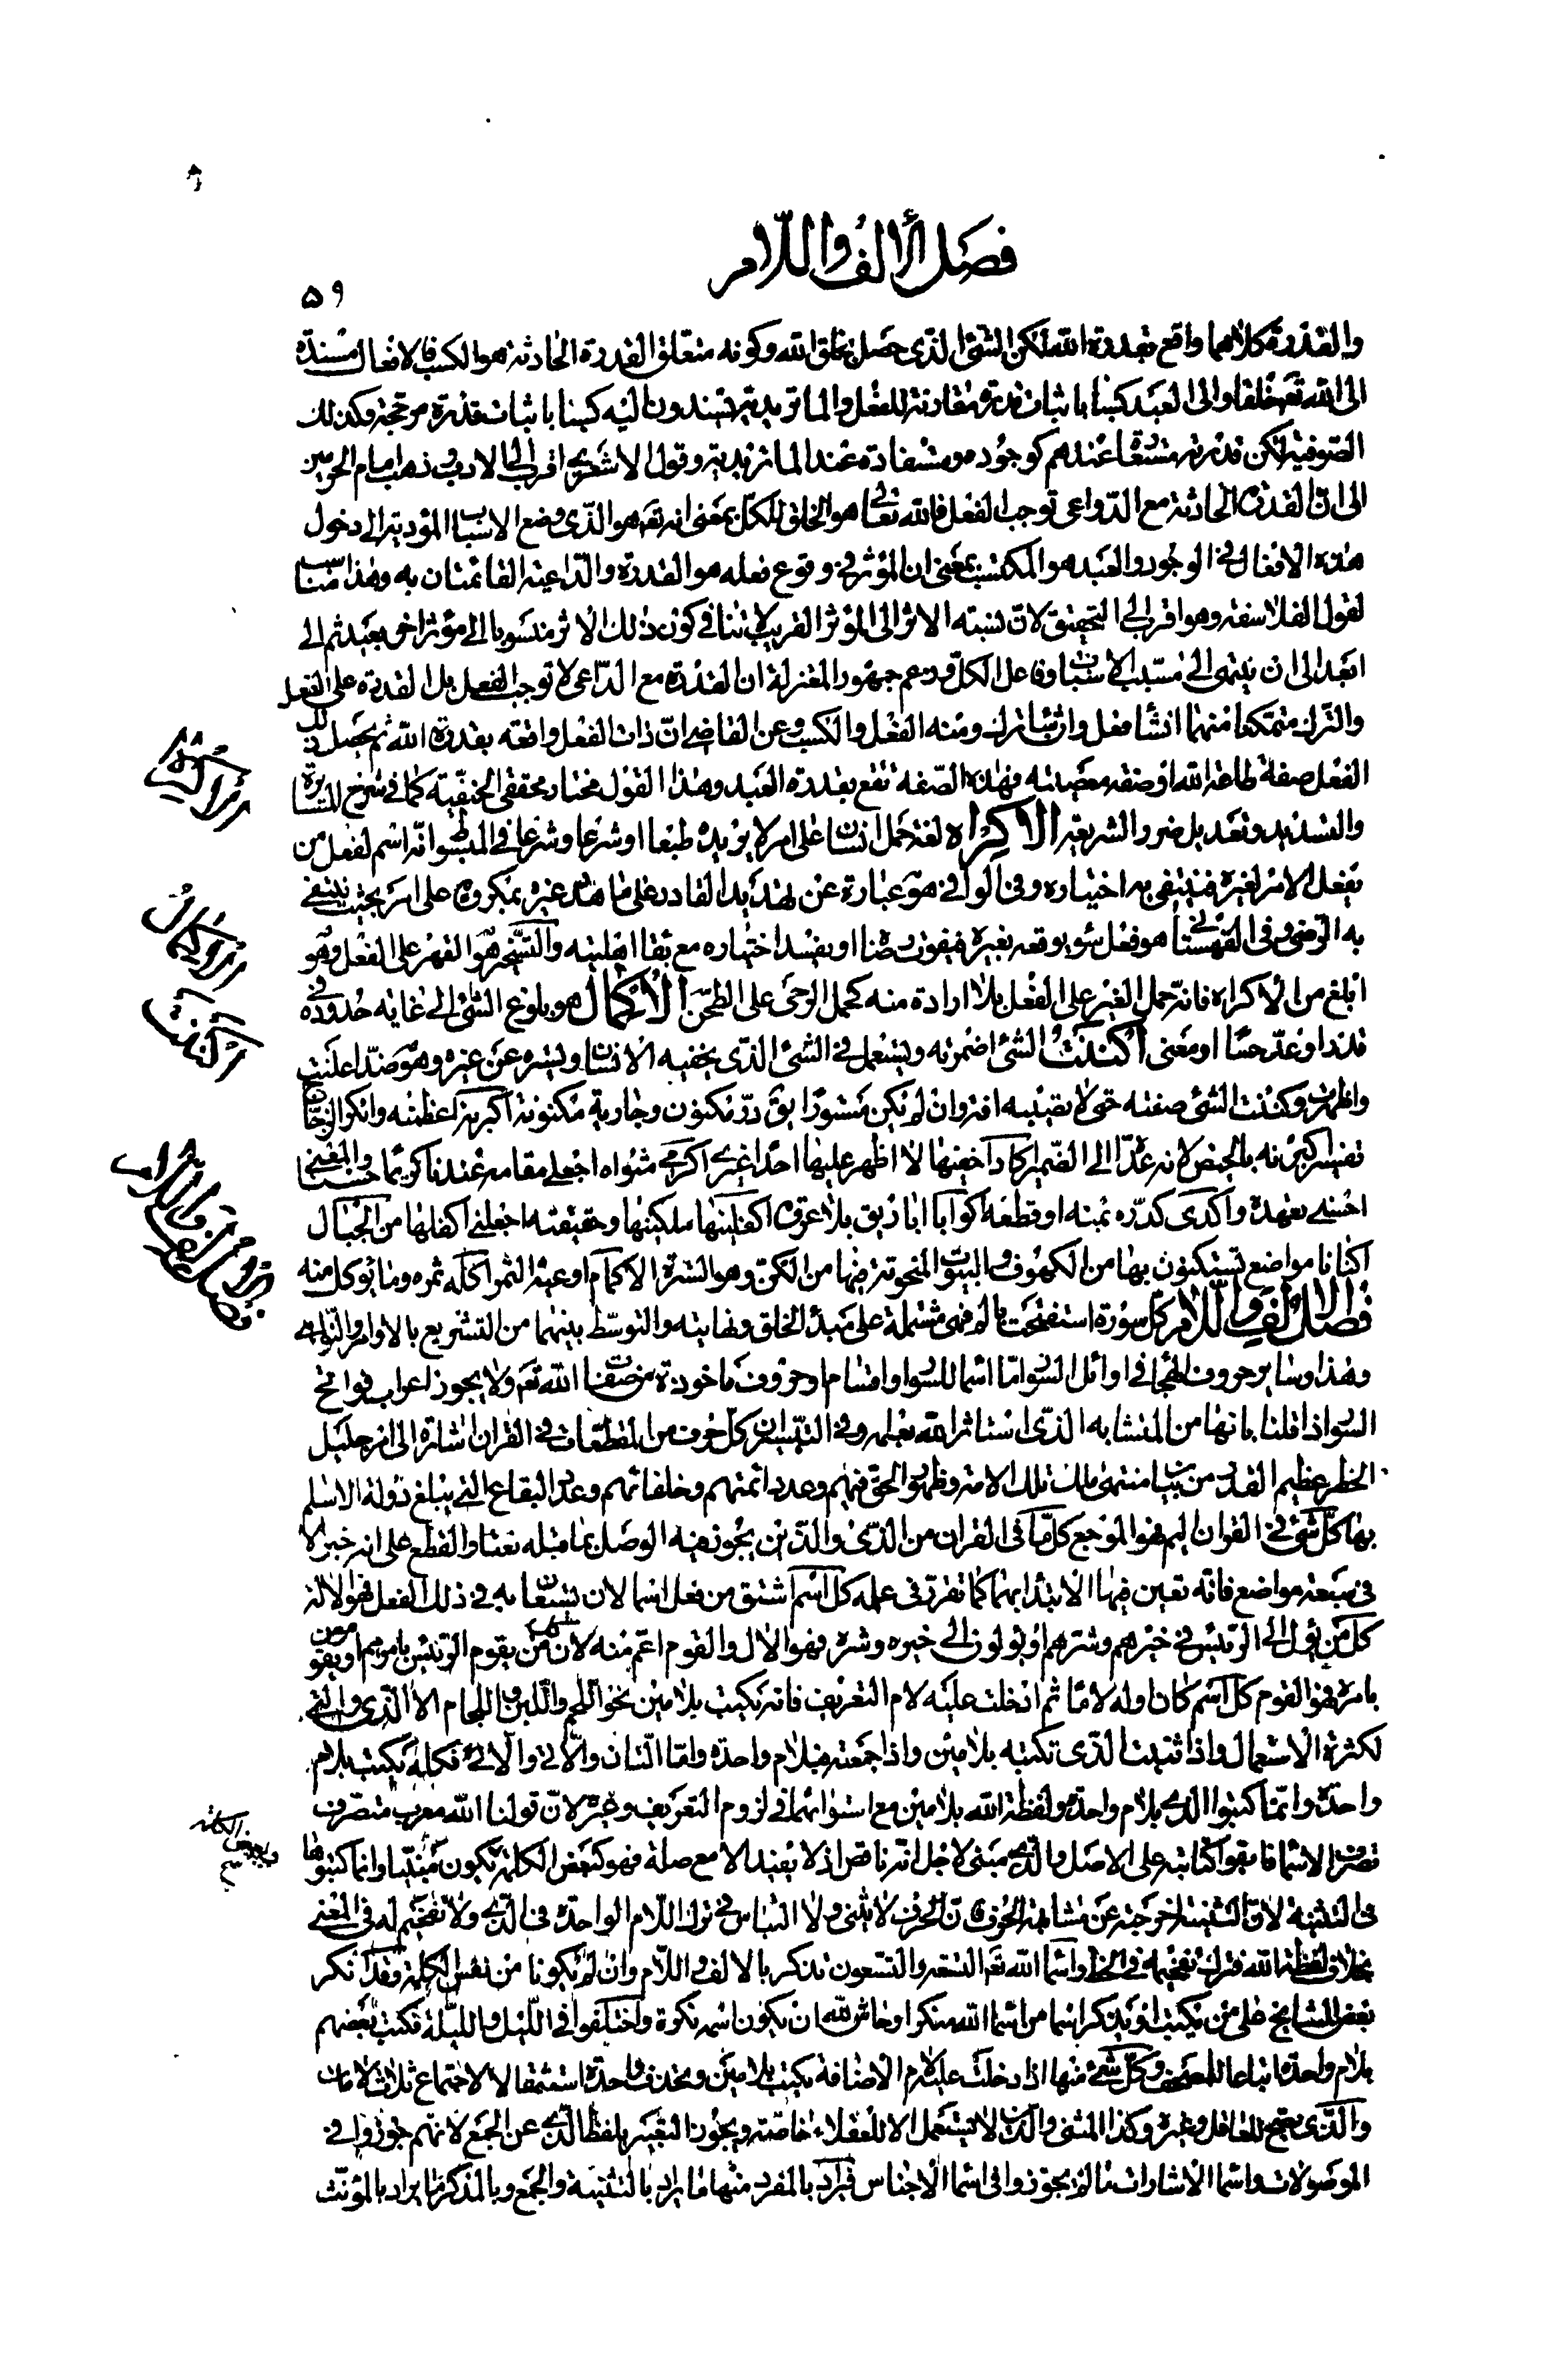 فصل الألف واللام
٥٩
والقدرة كلاهما واقع بقدرة الله لكن الشئ الذى حصل بخلق الله وكونه متعلق القدرة الحادثة هو الكسب فالافعال مسندة
الى الله تعه خلقا والى العبد كسبا باثبات قدرة مقارنة للفعل والماتريدية يسندون اليه كسبا باثبات قدرة مرجحة وكذلك
الصوفية لكن قدرته مستعارة عندهم كوجوده ومستفادة عند الماتريدية وقول الاشعرى اقرب الى الادب وذهب امام الحرمين
الى ان القدرة الحادثة مع الدواعى توجب الفعل فالله تعالى هو الخالق للكل بمعنى انه تعه هو الذى وضع الاسباب المؤدية الى دخول
هذه الافعال فى الوجود والعبد هو المكتسب بمعنى ان المؤثر فى وقوع فعله هو القدرة والداعية القائمتان به وهذا مناسب
لقول الفلاسفة وهو اقرب الى التحقيق لان نسبة الاثر الى المؤثر القريب لا تنافى كون ذلك الاثر منسوبا الى مؤثر اخر بعيد ثم الى
ابعد الى ان ينتهى الى مسبب الاسباب وفاعل الكل وزعم جمهور المعتزلة ان القدرة مع الداعى لا توجب الفعل بل القدرة على الفعل
والترك متمكنا منهما ان شاء فعل وان شاء ترك ومنه الفعل والكسب وعن القاضى ان ذات الفعل واقعة بقدرة الله ثم يحصل ذلك
الفعل صفة طاعة الله او صفة معصيته فهذه الصفة تقع بقدرة العبد وهذا القول مختار محققى الحنفية كما فى شرح المسايرة
والتسديد وتعديل صدر الشريعة الاكراه لغة حمل انسان على امر لا يريده طبعا او شرعا وشرعا فى المبسوط انه اسم لفعل من
يفعل الامر لغيره فينتفى به اختياره وفى الوافى هو عبارة عن تهديد القادر على ما هدد غيره بمكروه على امر بحيث ينتفى
به الرضى وفى القهستانى هو فعل سوء يوقعه بغيره فيفوت رضاه او يفسد اختياره مع بقاء اهليته والتسخير هو القهر على الفعل وهو
ابلغ من الاكراه فانه حمل الغير على الفعل بلا ارادة منه كحمل الرحى على الطحن الاكمال هو بلوغ الشئ الى غاية حدوده فى
قدر او عد حسا او معنى اكننت الشئ اضمرته ويستعمل فى الشئ الذى يخفيه الانسان ويستره عن غيره وهو ضد اعلنت
واظهرت وكننت الشئ صنته حتى لا تصيبه افة وان لم يكن مستورا يق در مكنون وجارية مكنونة اكبرنه اعظمنه وانكر الزجاج
تفسير اكبرنه بالحيض لانه عدى الى الضمير اكاد اخفيها لا اظهر عليها احدا غيرى اكرمى مثواه اجعلى مقامه عندنا كريما حسنا والمعنى
احسنى تعهده واكدى كدره بمنه او قطعه اكواب اباريق بلا عروة اكفلنيها ملكنيها وحقيقته اجعلنى اكفلها من الجبال
اكنانا مواضع تستكنون بها من الكهوف والبيوت المنحوتة فيها من الكن وهو السترة الاكمام اوعية الثمر اكله ثمره وما يؤكل منه
فصل الالف واللام كل سورة استفتحت بالم فهى مشتملة على مبدأ الخلق ونهايته والتوسط بينهما من التشريع بالاوامر والنواهى
وهذا وسائر حروف الهجاء فى اوائل السور اما اسماء للسور او اقسام او حروف ماخوذة من صفات الله تعه ولا يجوز اعراب فواتح
السور اذا قلنا بانها من المتشابه الذى استاثر الله بعلمه وفى التيسير ان كل حرف من المقطعات فى القران اشارة الى امر جليل
الخطر عظيم القدر من بيان منتهى ملك تلك الامة وظهور الحق فيهم وعدد ائمتهم وخلفائهم وعدد البقاع التى يبلغ دولة الاسلام
بها كل شئ فى القران اليم فهو الموجع كل ما فى القران من الذى والذين يجوز فيه الوصل بما قبله نعتا والقطع على انه خبر الا
فى سبعة مواضع فانه تعين فيها الابتداء بهما كما تقرر فى عمله كل اسم اشتق من فعل اسما لان يستعان به فى ذلك الفعل فهو الالة
كل من يؤل الى الرئيس فى خيرهم وشرهم او يؤلون الى خيره وشره فهو الال والقوم اعم منه لان كل من يقوم الرئيس بامرهم او يقومون
بامره فهو القوم كل اسم كان اوله لاما ثم ادخلت عليه لام التعريف فانه يكتب بلامين نحو اللحم واللبن واللجام الا الذى والتى
لكثرة الاستعمال واذا ثنيت الذى تكتبه بلامين واذا جمعته فبلام واحدة واما اللتان واللاتى واللائى فكله يكتب بلام
واحدة وانما كتبوا الذى بلام واحدة ولفظة الله بلامين مع استوائهما فى لزوم التعريف وغيره لان قولنا الله معرب متصرف
تصرف الاسماء فابقوا كتابته على الاصل والذى مبنى لاجل انه ناقص اذ لا يفيد الا مع صلة فهو كبعض الكلمة وبعض الكلمة يكون مبنيا وانما كتبوها
فى التثنية لان التثنية اخرجته عن مشابهة الحروف لان الحرف لا يثنى ولا التباس فى ترك اللام الواحدة فى الذى ولا تفخيم له فى المعنى
بخلاف لفظة الله فترك تفخيمه فى الخط واسماء الله تعه التسعة والتسعون تذكر بالالف واللام وان لم يكونا من نفس الكلمة وقد انكر
بعض المشايخ على من يكتب او يذكر اسما من اسماء الله منكرا وحاش لله ان يكون اسمه نكرة واختلفوا فى الليل والليلة فكتب بعضهم
بلام واحدة اتباعا للمصحف وكل شئ منها اذا دخلت عليه لام الاضافة يكتب بلامين وتحذف واحدة استثقالا لاجتماع ثلاث لامات
والذى يصح للعاقل وغيره وكذا المثنى والذين لا يستعمل الا للعقلاء خاصة ويجوز التعبير بلفظ الذى عن الجمع لانهم جوزوا فى
الموصولات واسماء الاشارات ما لم يجوزوا فى اسماء الاجناس فيراد بالمفرد منها ما يراد بالتثنية والجمع وبالمذكر ما يراد بالمؤنث